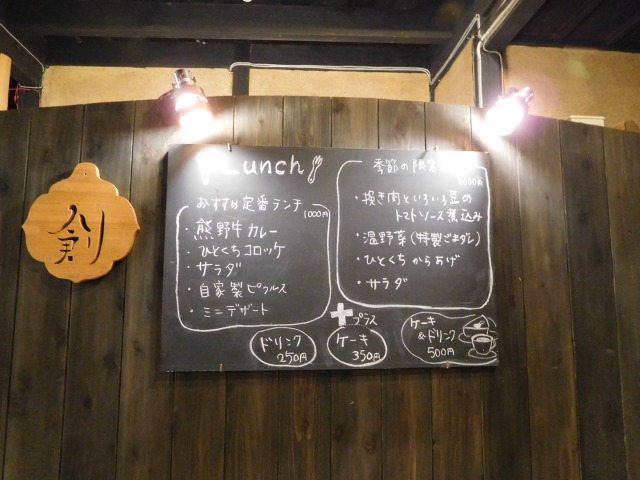 創
Lunch
おすすめ定番ランチ
1000円
・熊野牛カレー
・ひとくちコロッケ
・サラダ
・自家製ピクルス
・ミニデザート
季節の限定
1000円
・挽き肉といろいろ豆の
トマトソース煮込み
・温野菜(特製ごまダレ)
・ひとくちからあげ
・サラダ
+プラス
ドリンク
250円
ケーキ
350円
ケーキ
&ドリンク
500円